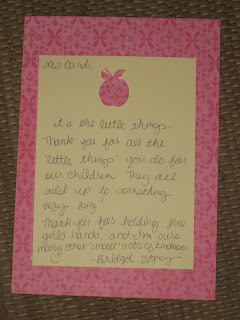 Mrs. Card,
it's the little things...
Thank you for all the
"little things" you do for
our children. They all
add up to something
very big!
Thank you for holding the
girls' hands, and I'm sure
many other "small" acts of kindness.
-Bridget